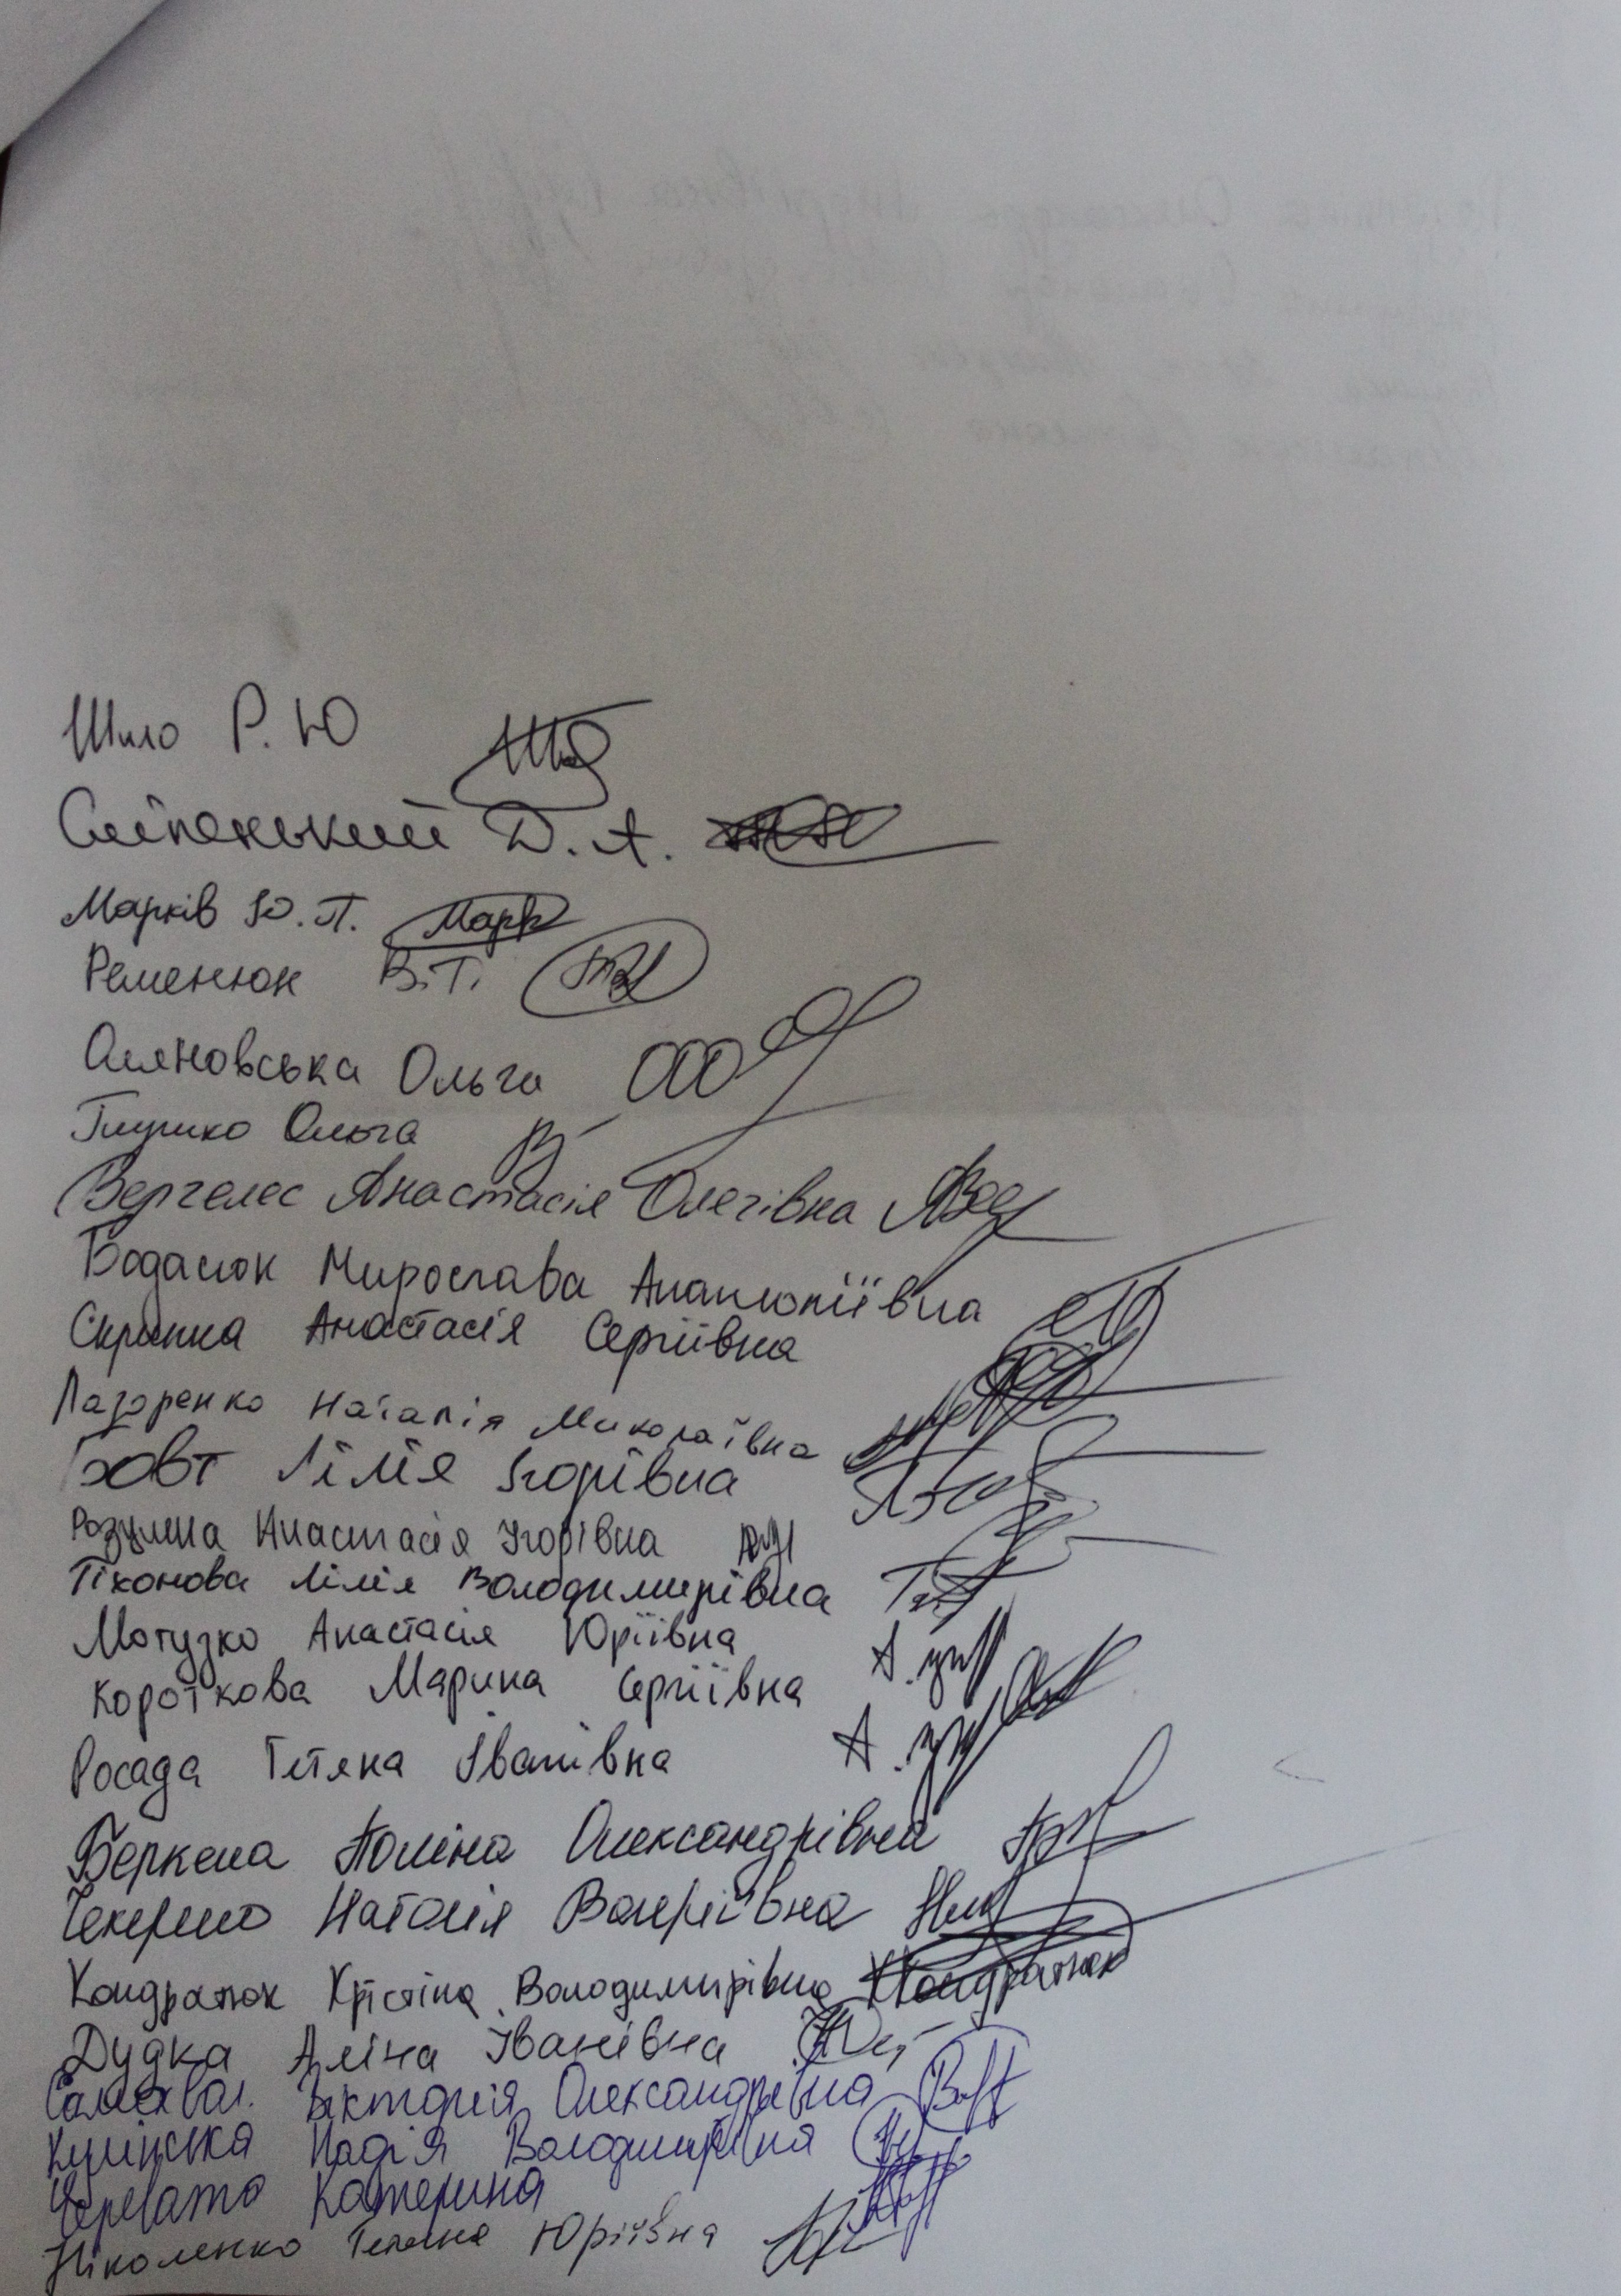 Шило Р. Ю
Сліпенький Д. А.
Марків Ю. П. Марк
Ременюк В. Т.
Оляновська Ольга
Глушко Ольга
Вергелес Анастасія Олегівна
Бодасюк Мирослава
Скрипка Анастасія Сергіївна
Лазоренко Наталія Миколаївна
Ґховт Лілія Ігорівна
Розумна Анастасія Ігорівна
Тіхонова Лілія Володимирівна
Мотузко Анастасія Юріївна
Короткова Марина Сергіївна
Росада Тетяна Іванівна
Беркела Поліна Олександрівна
Наталія Валеріївна
Кондратюк Крістіна Володимирівна Кондратюк
Дудка Аліна Іванівна
Вікторія Олександрівна
Надія Володимирівна
Черевато Катерина
Ніколенко Тетяна Юріївна